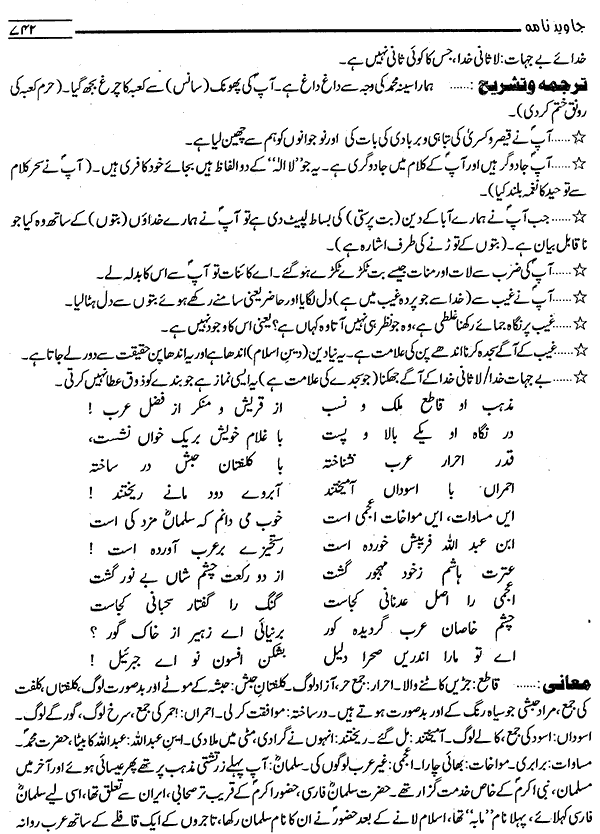 جاوید نامہ ۷۴۲
خدائے بے جہات: لاثانی خدا، جس کا کوئی ثانی نہیں ہے۔
ترجمہ و تشریح: ...... ہمارا سینہ محمد کی وجہ سے داغ داغ ہے۔ آپؐ کی پھونک (سانس) سے کعبہ کا چراغ بجھ گیا۔ (حرم کعبہ کی
رونق ختم کر دی)۔
☆...... آپؐ نے قیصر و کسریٰ کی تباہی و بربادی کی بات کی اور نوجوانوں کو ہم سے چھین لیا ہے۔
☆...... آپؐ جادوگر ہیں اور آپؐ کے کلام میں جادوگری ہے۔ یہ جو ’’لا الٰہ‘‘ کے دو الفاظ ہیں بجائے خود کافری ہیں۔ (آپؐ نے سحر کلام
سے توحید کا نغمہ بلند کیا)۔
☆...... جب آپؐ نے ہمارے آبا کے دین (بت پرستی) کی بساط لپیٹ دی ہے تو آپؐ نے ہمارے خداؤں (بتوں) کے ساتھ وہ کیا جو
ناقابل بیان ہے۔ (بتوں کے توڑنے کی طرف اشارہ ہے)۔
☆...... آپؐ کی ضرب سے لات اور منات جیسے بت ٹکڑے ٹکڑے ہو گئے۔ اے کائنات تو آپؐ سے اس کا بدلہ لے۔
☆...... آپؐ نے غیب سے (خدا سے جو پردہ غیب میں ہے) دل لگایا اور حاضر یعنی سامنے رکھے ہوئے بتوں سے دل ہٹا لیا۔
غیب پر نگاہ جمائے رکھنا غلطی ہے، وہ جو نظر ہی نہیں آتا وہ کہاں ہے؟ یعنی اس کا وجود نہیں ہے۔
☆...... غیب کے آگے سجدہ کرنا اندھے پن کی علامت ہے۔ یہ نیا دین (دینِ اسلام) اندھا ہے اور یہ اندھا پن حقیقت سے دور لے جاتا ہے۔
☆...... بے جہات خدا/ لاثانی خدا کے آگے جھکنا (جو سجدے کی علامت ہے) یہ ایسی نماز ہے جو بندے کو ذوق عطا نہیں کرتی۔
مذہب او قاطع ملک و نسب از قریش و منکر از فضل عرب !
در نگاہ او یکے بالا و پست با غلام خویش بر یک خواں نشست،
قدر احرار عرب نشناختہ با کلفتان حبش در ساختہ
احمراں با اسوداں آمیختند آبروے دود مانے ریختند !
ایں مساوات، ایں مواخات اعجمی است خوب می دانم کہ سلمانؓ مزد کی است
ابن عبد اللہ فریبش خوردہ است رستخیزے بر عرب آوردہ است !
عترت ہاشم ز خود مہجور گشت از دو رکعت چشم شاں بے نور گشت
اعجمی را اصل عدنانی کجاست گنگ را گفتار سحبانی کجاست
چشم خاصان عرب گردیدہ کور بر نیائی اے زہیر از خاک گور ؟
اے تو مارا اندریں صحرا دلیل بشکن افسون نوائے جبرئیل !
معانی: ...... قاطع: جڑیں کاٹنے والا۔ احرار: جمع حر، آزاد لوگ۔ کلفتانِ حبش: حبشہ کے موٹے اور بدصورت لوگ، کلفتاں، کلفت
کی جمع، مراد حبشی جو سیاہ رنگ کے اور بدصورت ہوتے ہیں۔ در ساختہ: موافقت کر لی۔ احمراں: احمر کی جمع، سرخ لوگ، گورے لوگ۔
اسوداں: اسود کی جمع، کالے لوگ۔ آمیختند: مل گئے۔ ریختند: انہوں نے گرا دی، مٹی میں ملا دی۔ ابن عبداللہ: عبداللہ کا بیٹا، حضرت محمدؐ۔
مساوات: برابری۔ مواخات: بھائی چارا۔ اعجمی: غیر عرب لوگوں کی۔ سلمانؓ: آپ پہلے زرتشتی مذہب پر تھے پھر عیسائی ہوئے اور آخر میں
مسلمان، نبی اکرمؐ کے خاص خدمت گزار تھے۔ حضرت سلمانؓ فارسی، حضور اکرمؐ کے قریب تر صحابی، ایران سے تعلق تھا، اسی لیے سلمانؓ
فارسی کہلائے، پہلا نام ’’مابہ‘‘ تھا، اسلام لانے کے بعد حضورؐ نے ان کا نام سلمان رکھا، تاجروں کے ایک قافلے کے ساتھ عرب روانہ